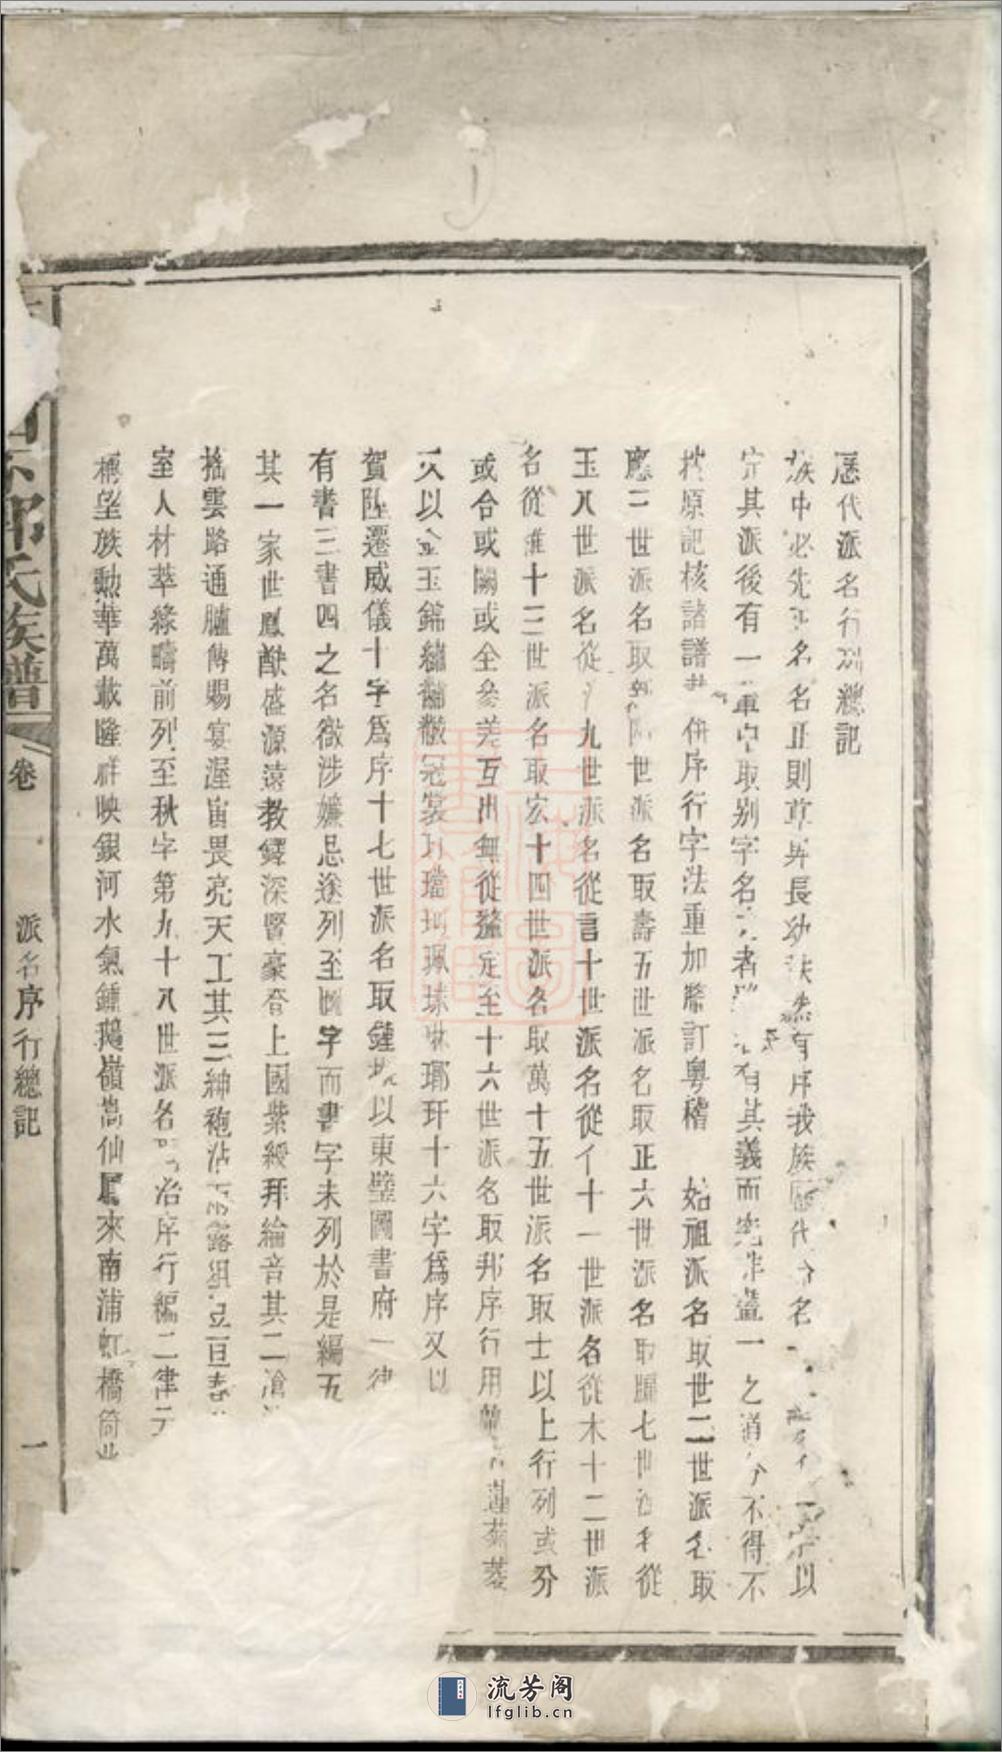 歷代派名行列總記
族中必先正名名正則尊卑長幼秩然有序我族歷代命名以
定其派後有一輩中取別字名之者有其義而究非畫一之道今不得不
於原記核諸譜併序行字法重加釐訂粵稽 始祖派名取世二世派名取
應三世派名取世派名取壽五世派名取正六世派名取七世派名從
玉八世派名從九世派名從言十世派名從亻十一世派名從木十二世派
名從十三世派名取宏十四世派名取萬十五世派名取士以上行列或分
或合或闕或全參差互出無從遽定至十六世派名取邦序行用蓮菊菱
又以金玉錦繡黼黻冠裳環璫珂珮球琳瑯玕十六字爲序又以
賀陞遷威儀十字爲序十七世派名取鍾以東壁圖書府一律
有書三書四之名微涉嫌忌逐列至圖字而書字未列於是編五
其一家世鳳猷盛源遠教鐸深賢豪奋上國紫綬拜綸音其二滄
摇雲路通臚傳賜宴渥宙畏亮天工其三紳袍沾露亘
室人材萃綠疇前列至秋字第九十八世派名治序行編二律
稱望族勳華萬載隆祥映銀河水氣鍾鵝嶺嵩仙鳧來南浦虹橋筒
郭氏族譜
卷
派名序行總記
一
流芳阁
lfglib.cn